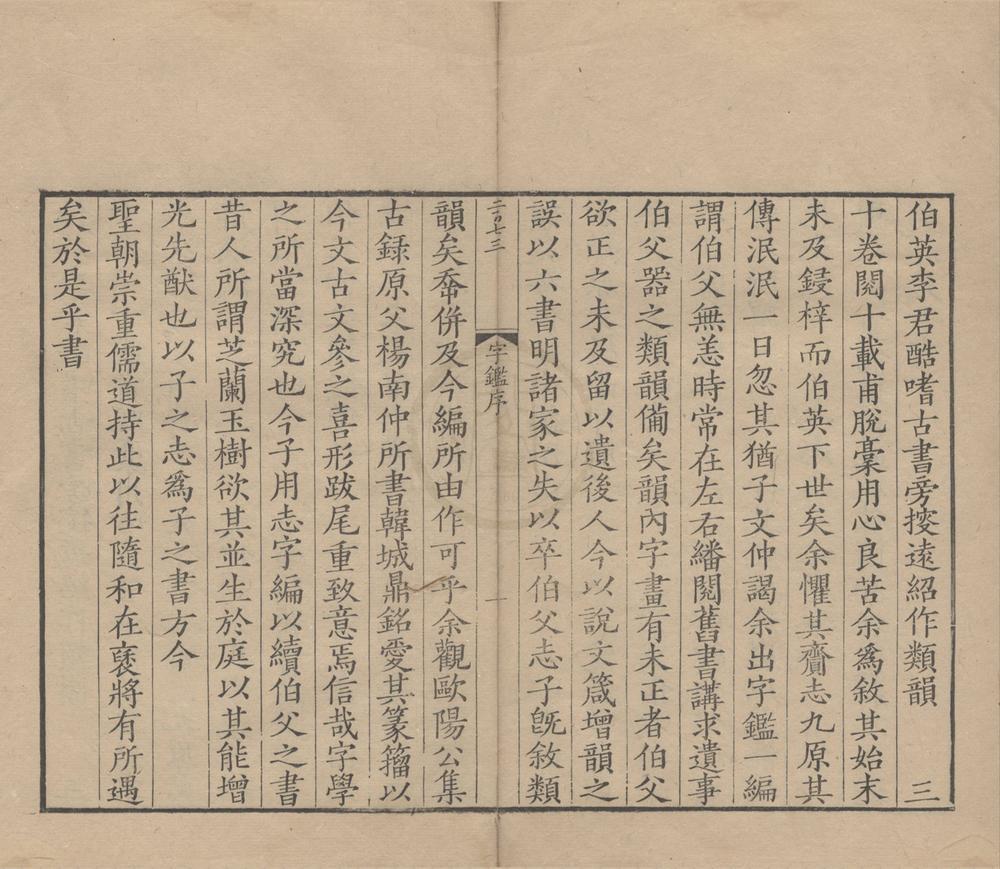 伯英李君酷嗜古書旁搜遠紹作類韻　三
十卷閱十載甫脫稾用心良苦余爲敘其始末
未及鋟梓而伯英下世矣余懼其齎志九原其
傳泯泯一日忽其猶子文仲謁余出字鑑一編
謂伯父無恙時常在左右繙閱舊書講求遺事
伯父器之類韻備矣韻內字畫有未正者伯父
欲正之未及留以遺後人今以說文箴增韻之
誤以六書明諸家之失以卒伯父志子旣敘類
二百七三
字鑑序
一
韻矣奮併及今編所由作可乎余觀歐陽公集
古錄原父楊南仲所書韓城鼎銘愛其篆籀以
今文古文參之喜形跋尾重致意焉信哉字學
之所當深究也今子用志字編以續伯父之書
昔人所謂芝蘭玉樹欲其並生於庭以其能增
光先猷也以子之志爲子之書方今
聖朝崇重儒道持此以往隨和在褎將有所遇
矣於是乎書